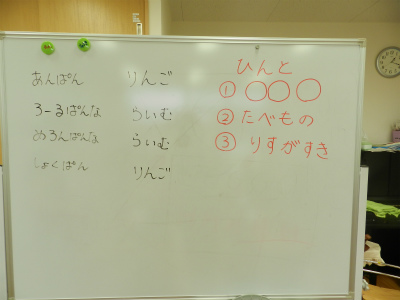 あんぱん りんご
ろーるぱんな らいむ
めろんぱんな らいむ
しょくぱん りんご
ひんと
① ○○○
② たべもの
③ りすがすき